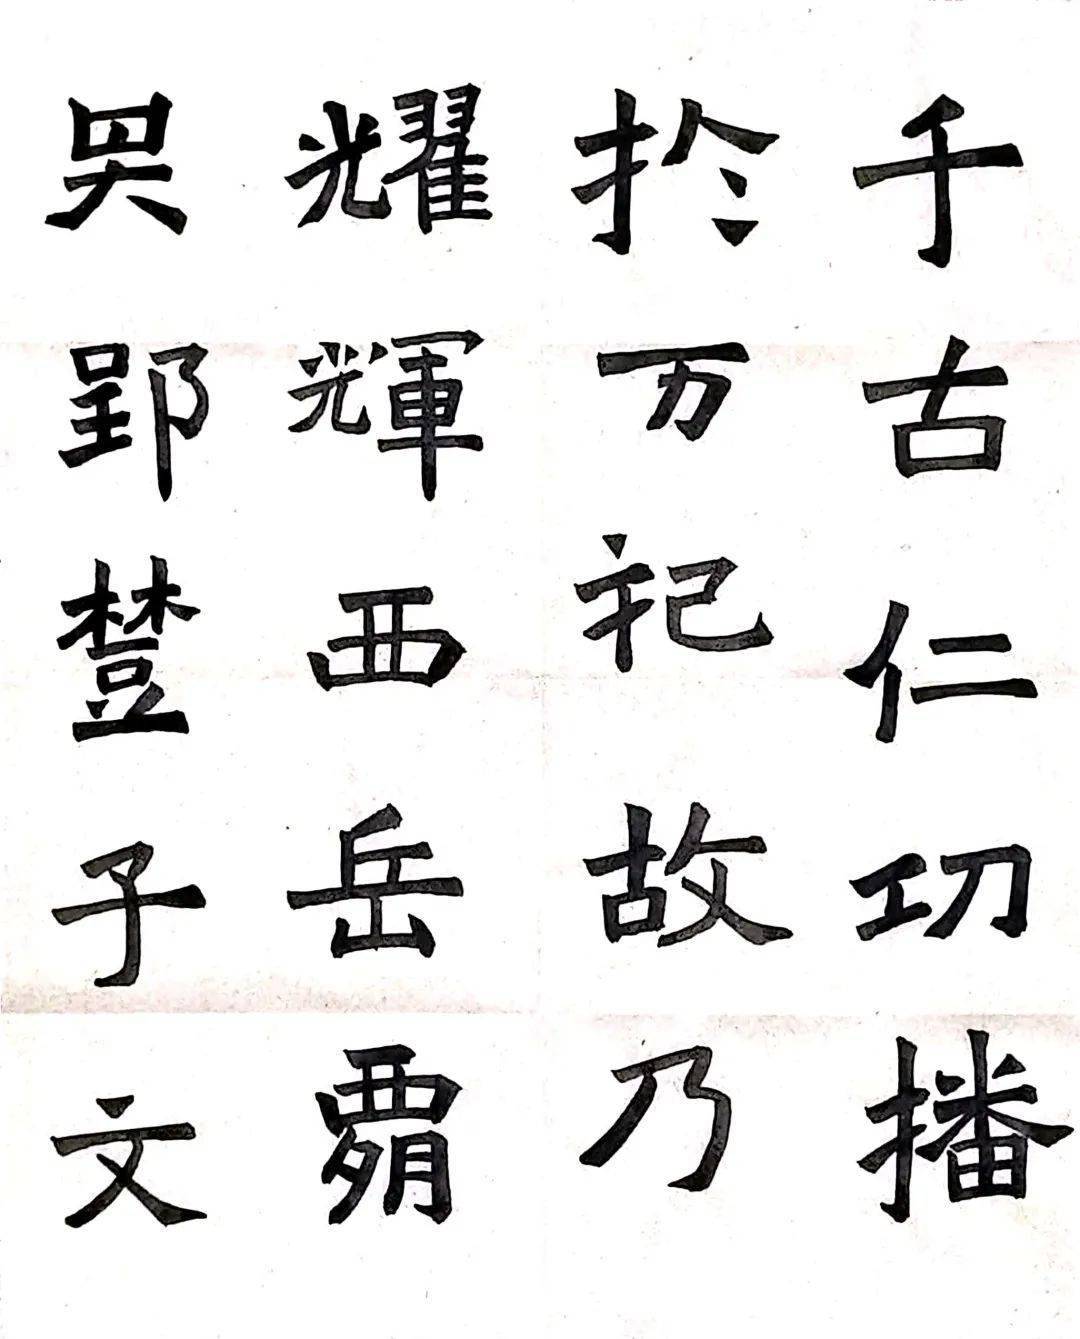 千古仁㓛播
於万祀故乃
耀輝西岳覇
郢楚子文